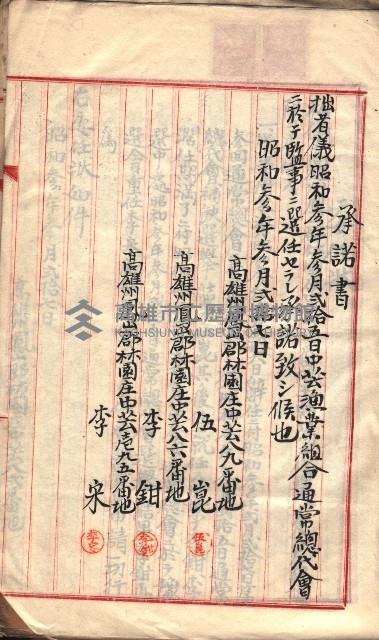 承諾書
拙者儀昭和参年参月弐拾五日中芸漁業組合通常總代會
ニ於テ監事ニ選任セラレ承諾致シ候也
昭和参年参月弐拾七日
高雄州鳳山郡林園庄中芸八九番地
伍崑
高雄州鳳山郡林園庄中芸八六番地
李鉗
高雄州鳳山郡林園庄中芸壱九五番地
李宋
高雄市立歷史博物館
KAOHSIUNG MUSEUM OF HISTORY